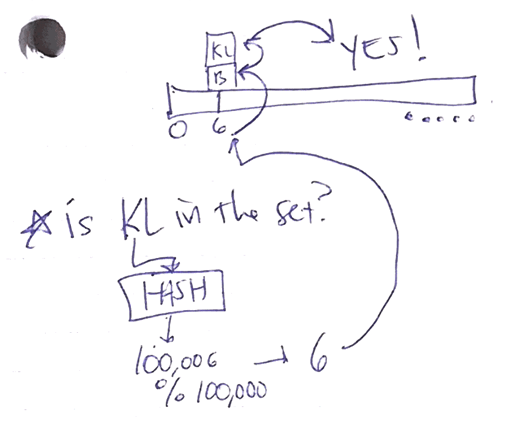 KL
YES!
B
0 6
is KL in the set?
HASH
100,006 → 6
% 100,000